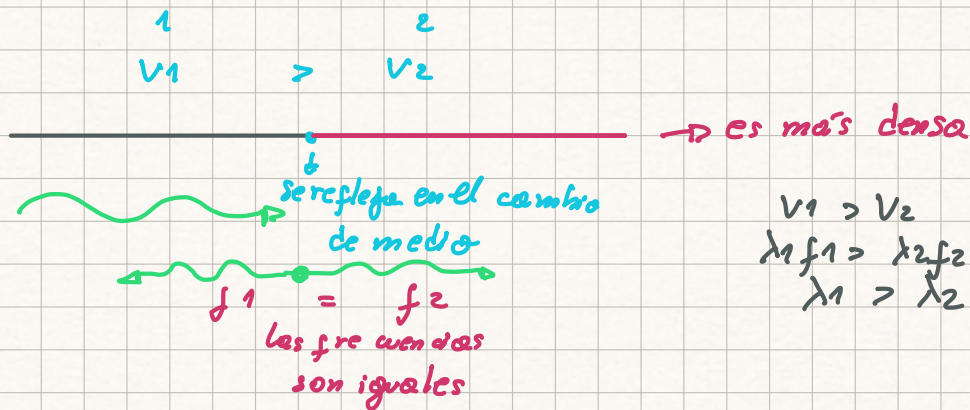 1 2
V1 > V2
→ es más densa
se refleja en el cambio
de medio
V1 > V2
λ1 f1 > λ2 f2
λ1 > λ2
f1 = f2
las frecuencias
son iguales